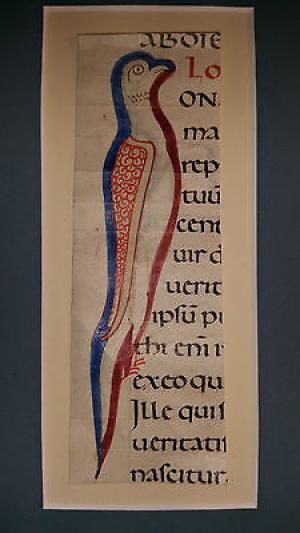 ABDIE
LO
ON
ma
rep
tuū
cent
uir d
uerit
ipsū pr
thi eni r
exeo qu
Ille quis
ueritati
nascitur.